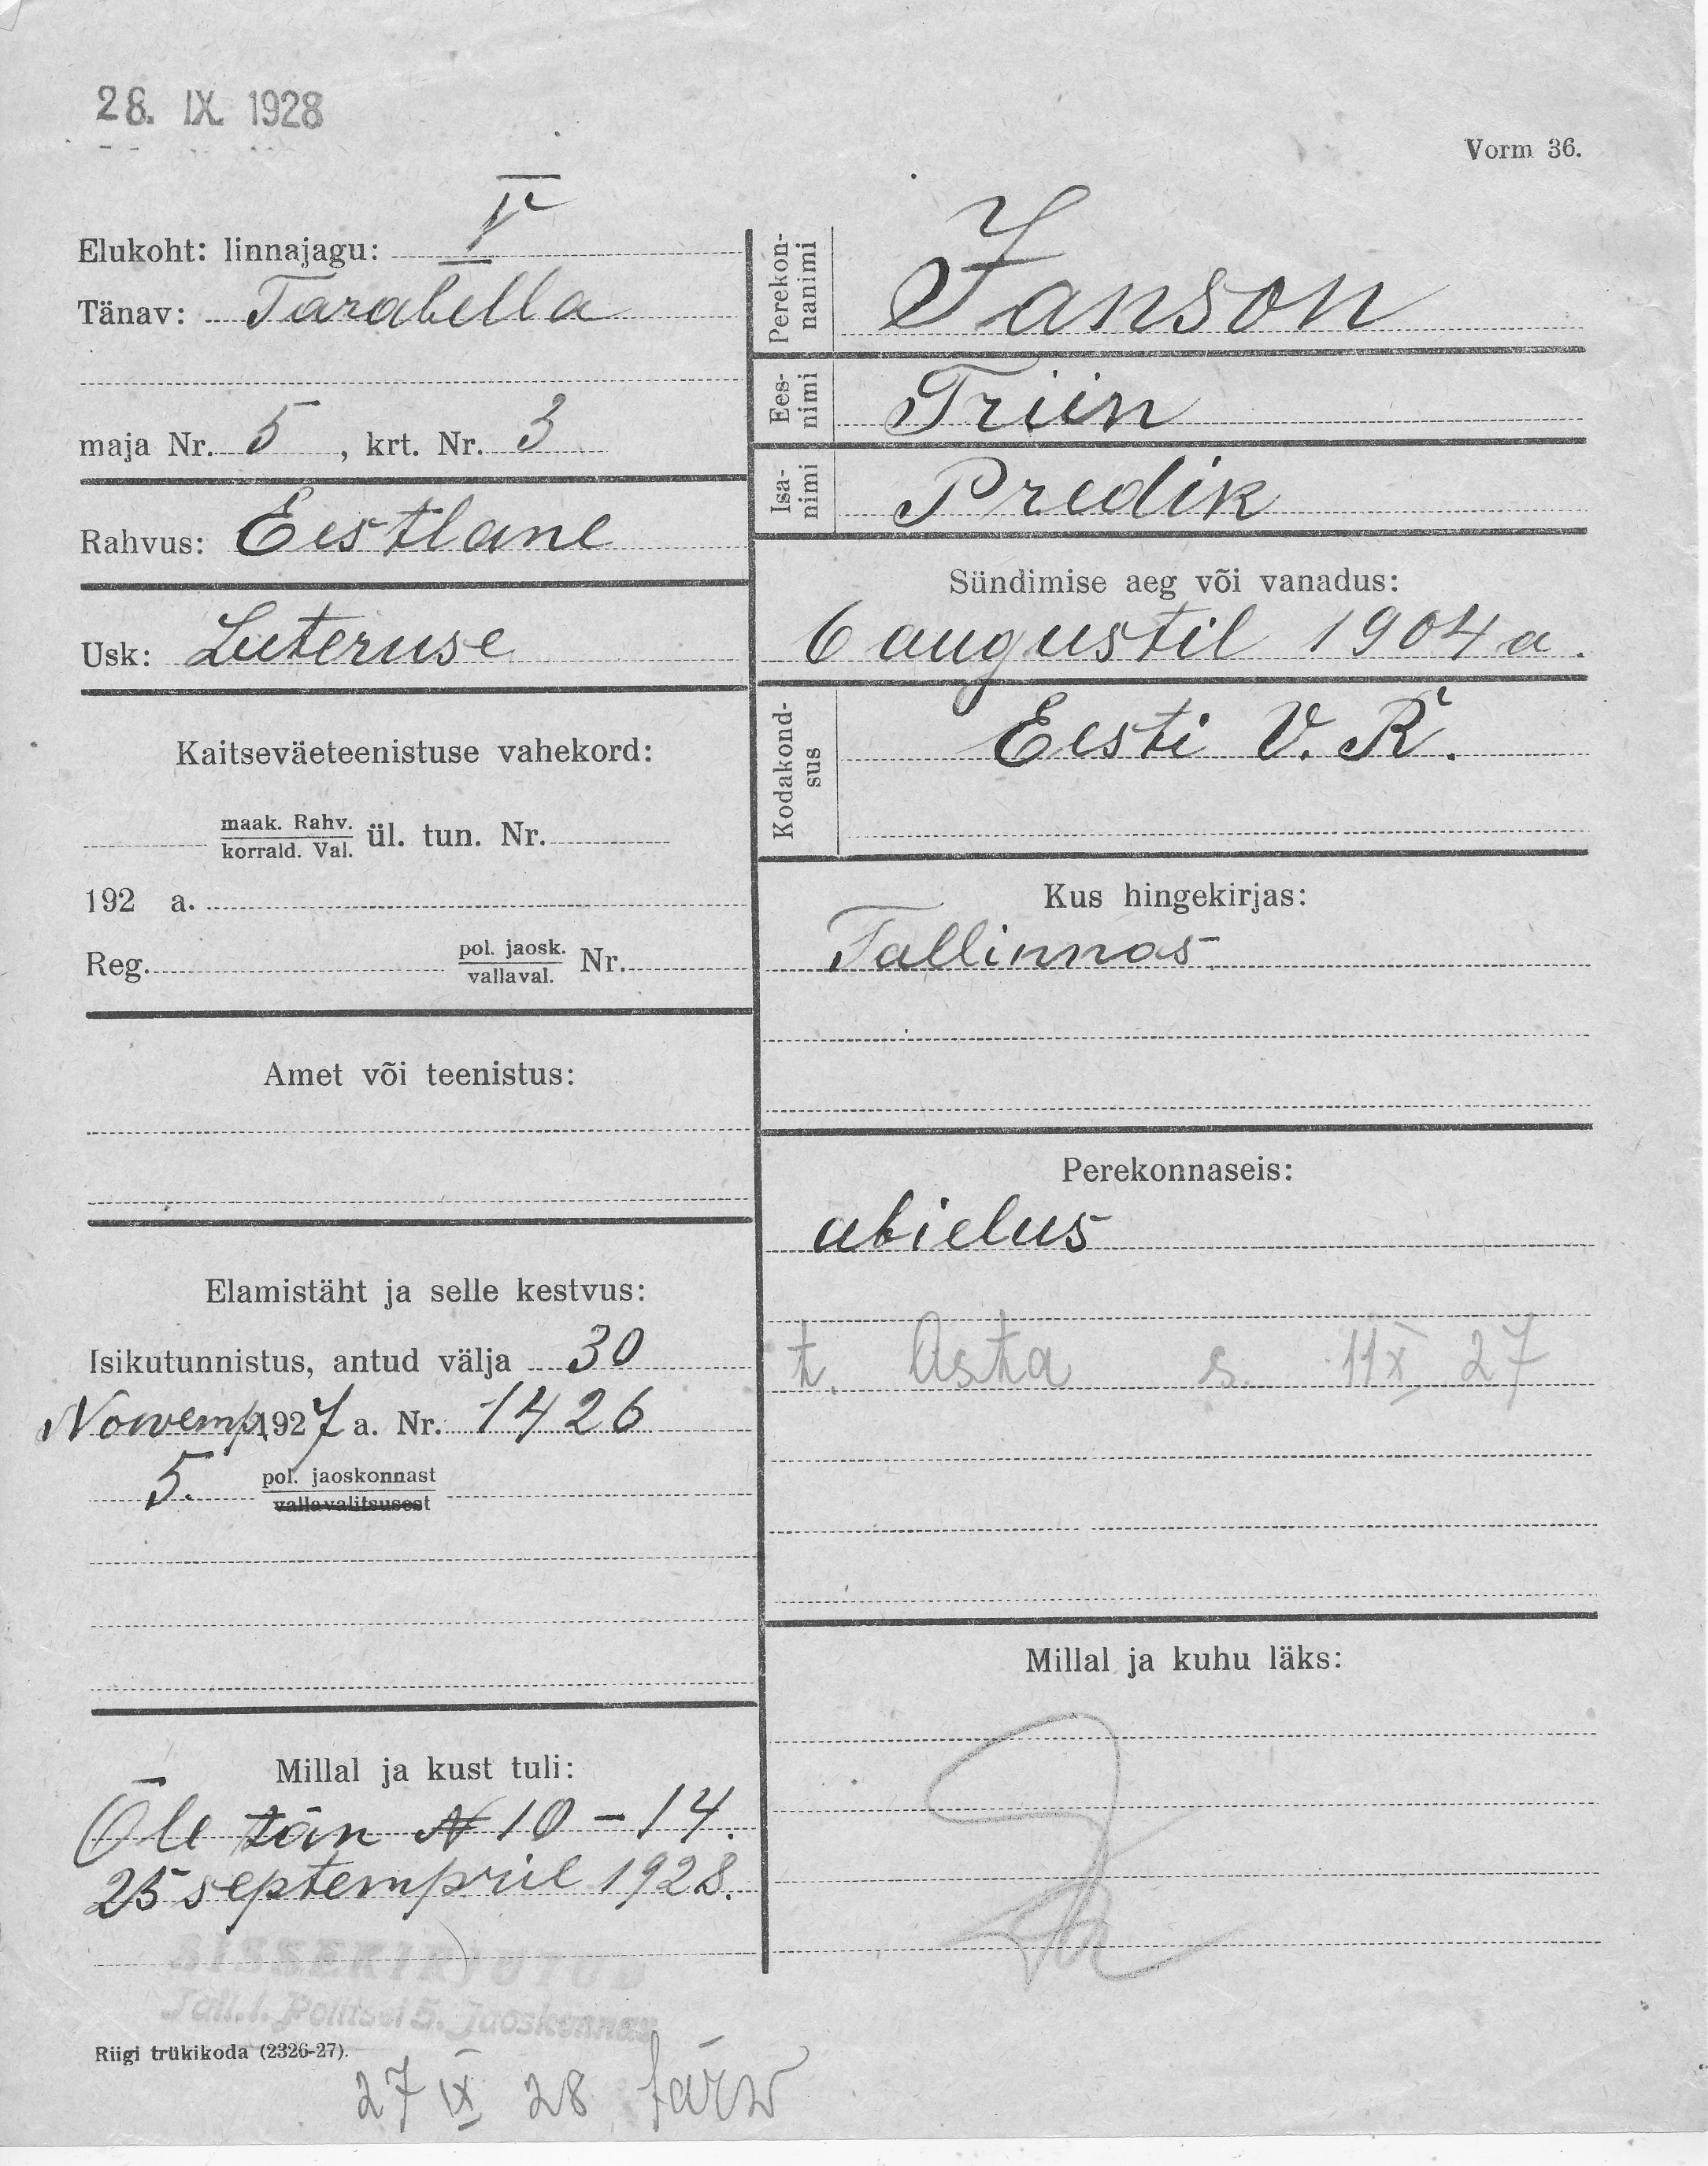 28. IX. 1928
Vorm 36.
Elukoht: linnajagu: V
Tänav: Tarabella
maja Nr. 5, krt. Nr. 3
Rahvus: Eestlane
Usk: Luteruse
Kaitseväeteenistuse vahekord:
maak. Rahv.
korrald. Val. ül. tun. Nr.
192 a.
Reg. pol. jaosk.
vallaval. Nr.
Amet või teenistus:
Elamistäht ja selle kestvus:
Isikutunnistus, antud välja 30
Nowemp. 1927 a. Nr. 1426
5. pol. jaoskonnast
vallavalitsusest
Millal ja kust tuli:
Õle tän N 10 - 14.
25 septempril 1928.
SISSEKIRJUTUD
Tall. l. Politsei 5. Jaoskonnas
Riigi trükikoda (2326-27).
27 IX 28
Perekon-
nanimi
Janson
Ees-
nimi
Triin
Isa-
nimi
Predik
Sündimise aeg või vanadus:
6 augustil 1904 a.
Kodakond-
sus
Eesti V. R.
Kus hingekirjas:
Tallinnas
Perekonnaseis:
abielus
t. Asta s. 11 X 27
Millal ja kuhu läks: